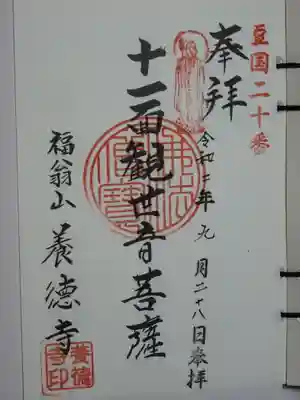 豆国二十番
奉拝
令和二年九月二十八日奉拝
十一面観世音菩薩
佛法僧寳
福翁山 養徳寺
養徳寺印